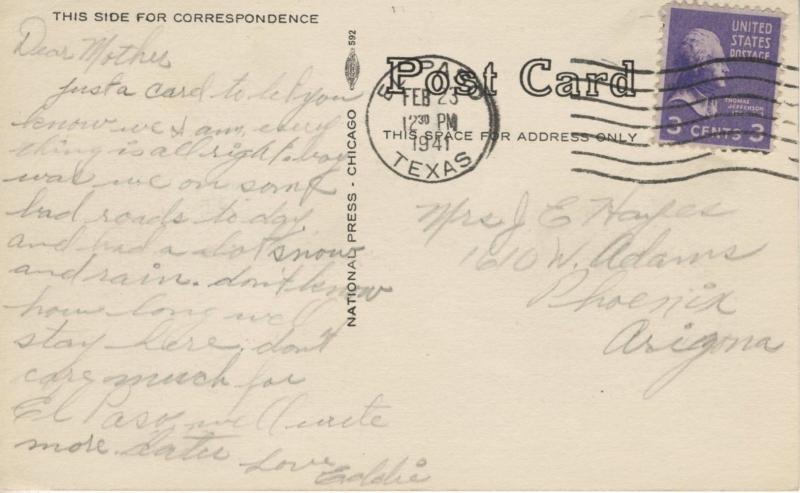 THIS SIDE FOR CORRESPONDENCE
Dear Mother
Just a card to let you
know we am, every
thing is all right. boy
was we on some
bad roads to day.
and had a lot snow
and rain. don't know
how long we
stay here. don't
care much for
El Paso, we'll write
more later Love
Goldie
592
NATIONAL PRESS - CHICAGO
Post Card
THIS SPACE FOR ADDRESS ONLY
EL PASO
FEB 23
12 30 PM
1941
TEXAS
UNITED
STATES
POSTAGE
THOMAS
JEFFERSON
3 CENTS 3
Mrs J E Hayes
1610 W. Adams
Phoenix
Arizona